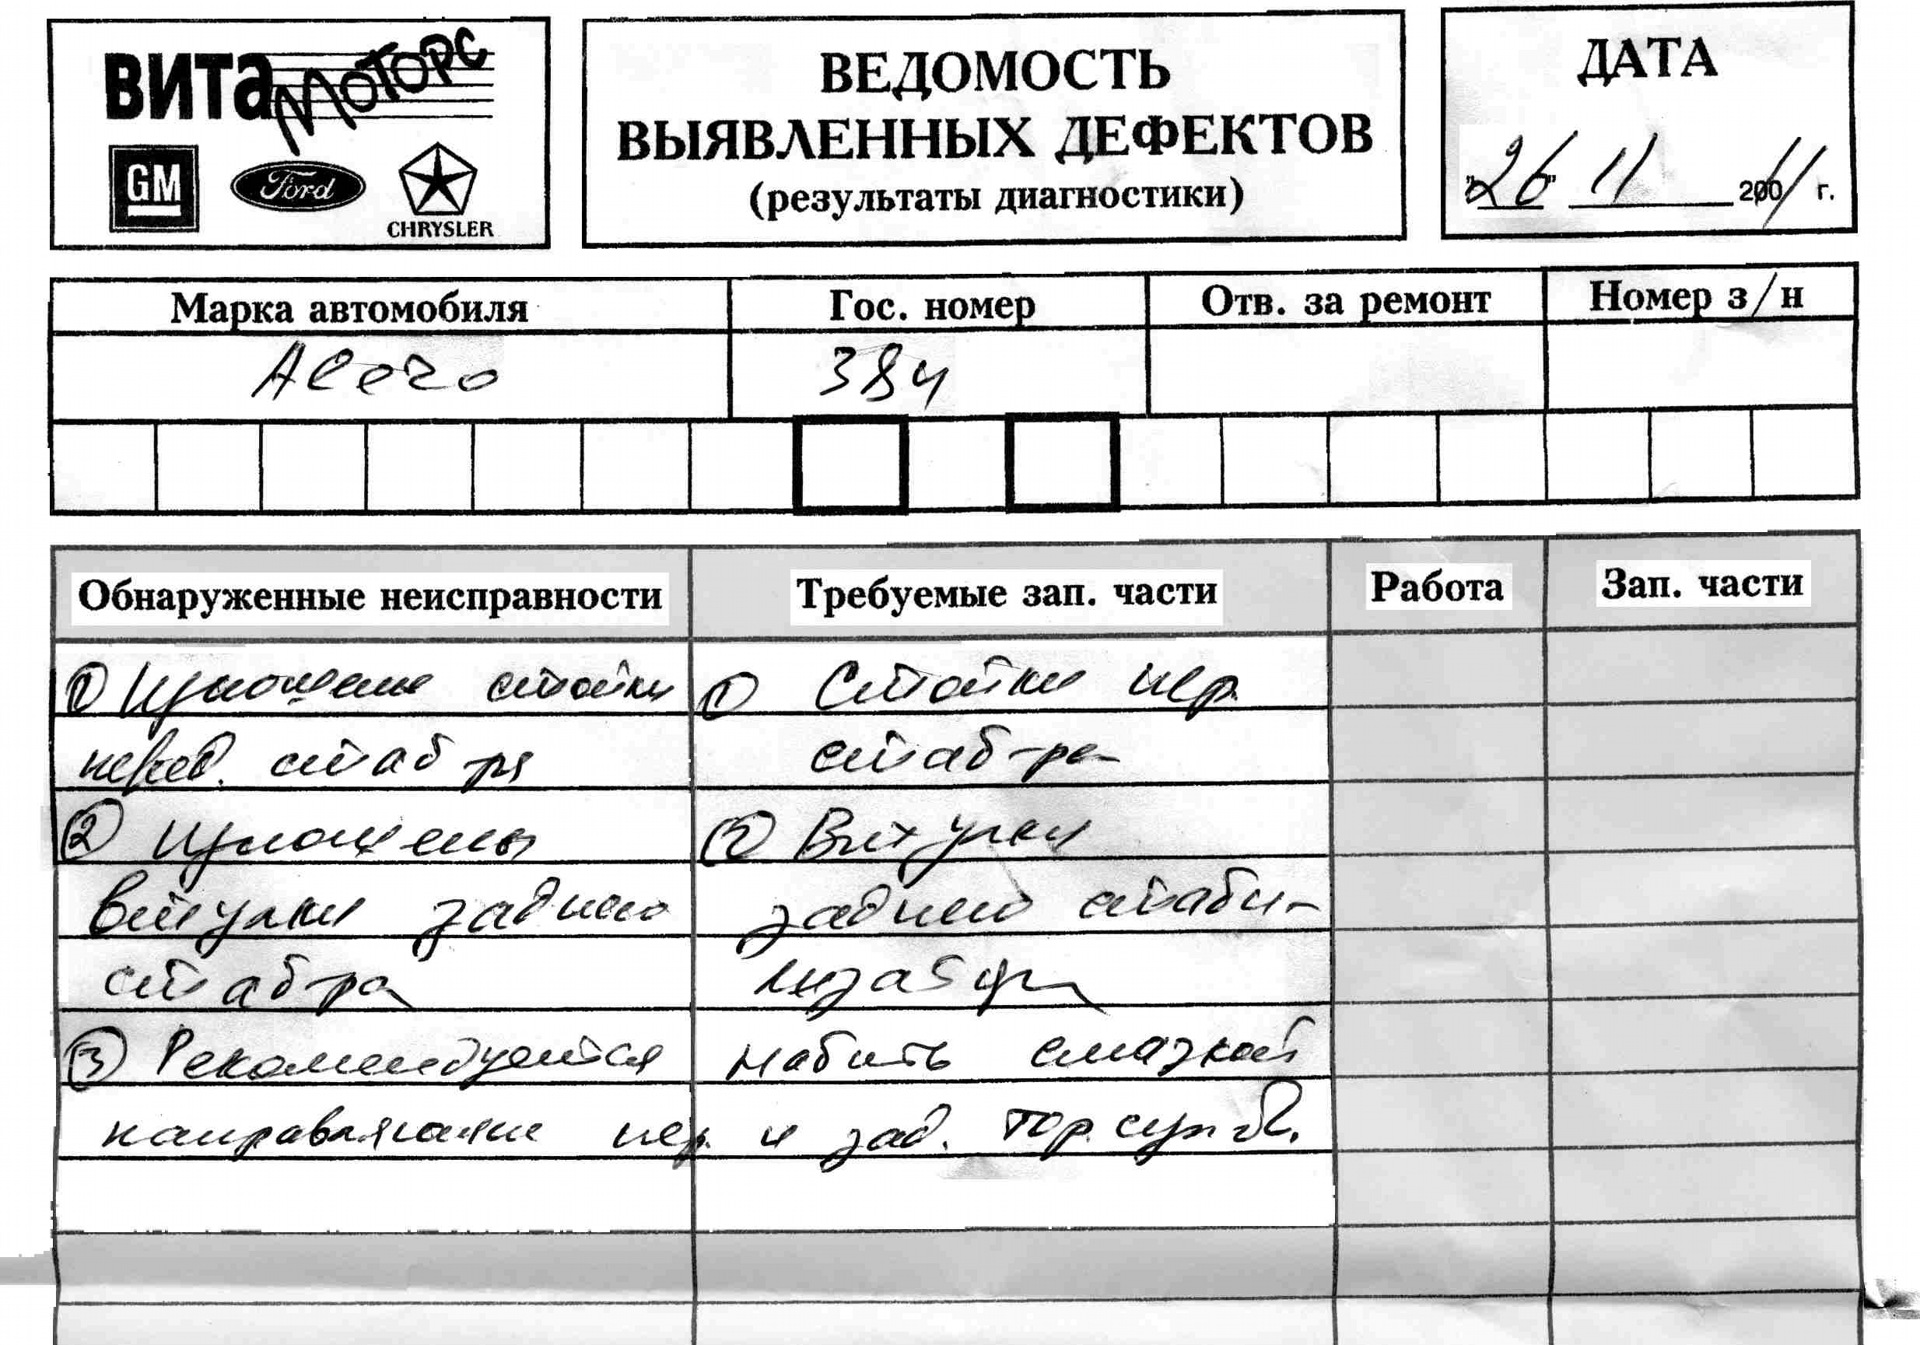 ВИТА МОТОРС
GM Ford CHRYSLER
ВЕДОМОСТЬ
ВЫЯВЛЕННЫХ ДЕФЕКТОВ
(результаты диагностики)
ДАТА
"26" 11 2001 г.
Марка автомобиля Гос. номер Отв. за ремонт Номер з/н
Alero 384
Обнаруженные неисправности Требуемые зап. части Работа Зап. части
① Изношены стойки
перед. стаб-ра
② Изношены
втулки заднего
стаб-ра
① Стойки пер.
стаб-ра
② Втулки
заднего стаби-
лизатора
③ Рекомендуется набить смазкой
направляющие пер. и зад. тор. суп.